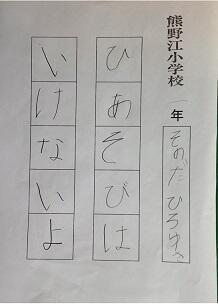 熊野江小学校 一年
そのだ ひろゆき
ひあそびは
いけないよ